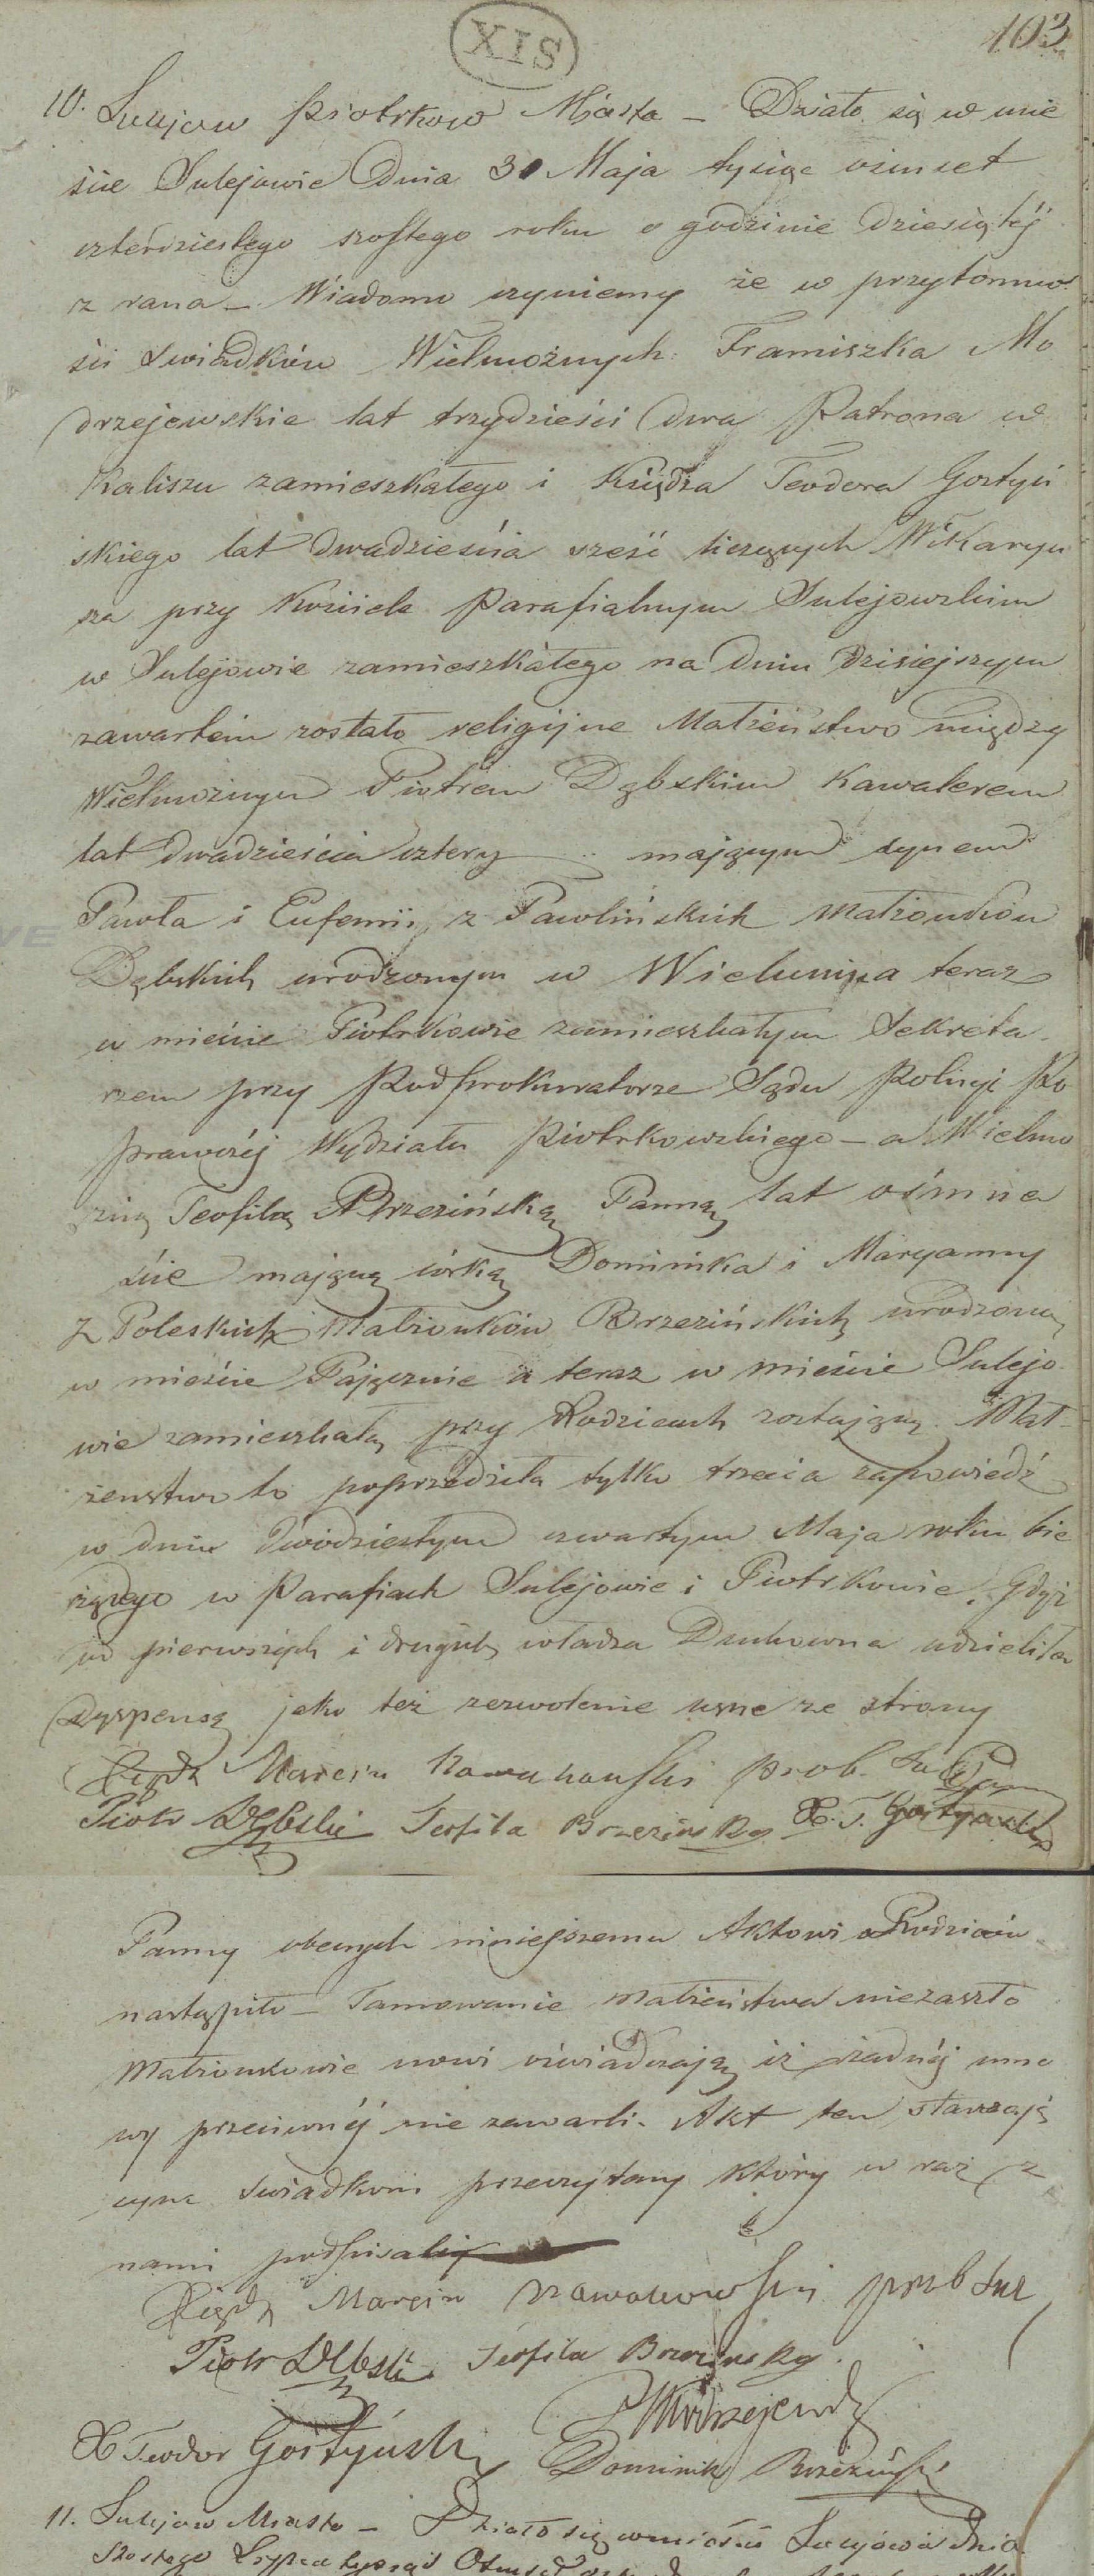 XIS
103
10. Sulejow Piotrkow Miasta – Działo się w mie
ście Sulejowie Dnia 30 Maja tysiąc ośmset
czterdziestego szostego roku o godzinie dziesiątéj
z rana – Wiadomo czyniemy że w przytomno
ści Swiadków Wielmożnych Franciszka Mo
drzejewskie lat trzydzieści dwa Patrona w
Kaliszu zamieszkałego i Księdza Teodora Gostyń
skiego lat dwadzieścia sześć liczących Wikaryu
sza przy Kościele Parafialnym Sulejowskim
w Sulejowie zamieszkałego na dniu dzisiejszym
zawartem zostało religijne Małżeństwo między
Wielmożnym Piotrem Dąbskim Kawalerem
lat dwadzieścia cztery mającym synem
Pawła i Eufemii z Pawlińskich Małzonków
Dąbskich urodzonym w teraz
w mieście Piotrkowie zamieszkałym Sekreta
rzem przy Podprokuratorze Sądu Policyi Po
prawczéj Wydziału Piotrkowskiego – a Wielmo
żną Teofilą Brzezińską Panną lat ośmna
ście mającą córką Dominika i Maryanny
z Poleskich Małzonków Brzezińskich urodzoną
w mieście Pajęcznie a teraz w mieście Sulejo
wie zamieszkałą przy Rodzicach zostającą. Mał
zenstwo to poprzedziła tylko trzecia zapowiedź
w dniu dwódziestym czwartym Maja roku bie
rzącego w Parafiach Sulejowie i Piotrkowie. Gdyż
od pierwszych i drugich władza Duchowna udzieliła
Dyspensą jako też zezwolenie ustne ze strony
Xiądz Marcin prob. Sul
Piotr Dąbski Teofila Brzezinska X. T. Gostyński
Panny obecnych niniejszemu Aktowi Rodziców
nastąpiło – Tamowanie małżeństwa niezaszło
Małzonkowie nowi oświadczają iż żadnéj umo
wy przeciwnéj nie zawarli. Akt ten stawają
cym Swiadkom przeczytany który w raz z
nami podpisali
Xiądz Marcin prob Sul
Piotr Dąbski Teofila Brzezinska.
F Modrzejewski
X Teodor Gostyński Dominik Brzeziński
11. Sulejow Miasto – Działo się w mieście Sulejowie Dnia
Szostego Lipca tysiąc Ośmset